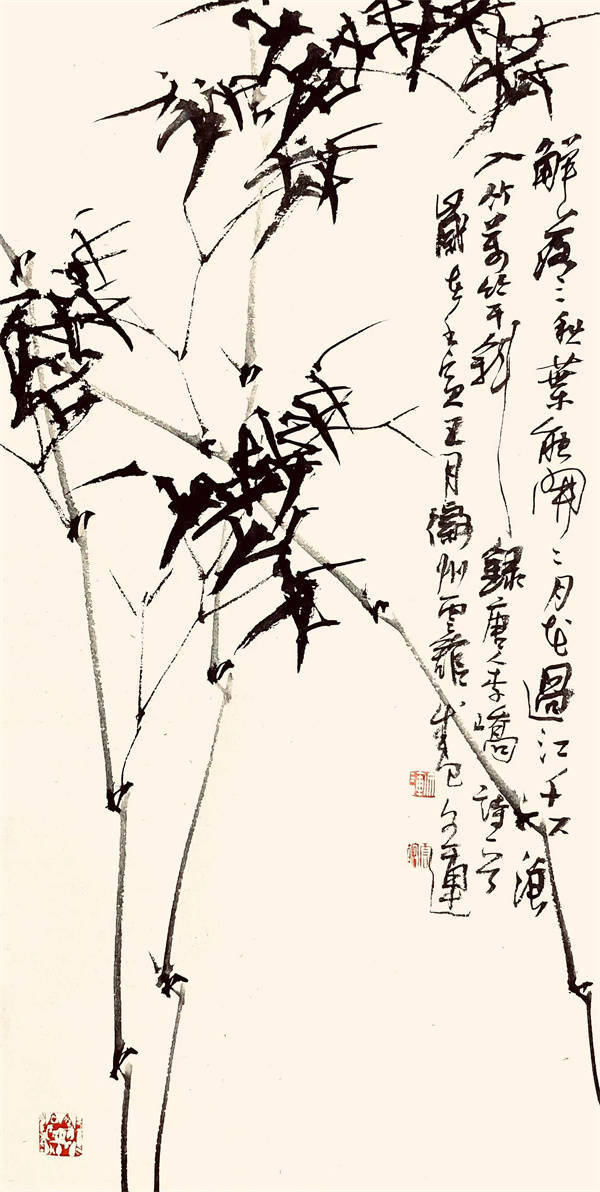 解落三秋葉能開二月花過江千尺浪
入竹萬竿斜錄唐人李嶠詩一首
歲在壬寅正月徽州